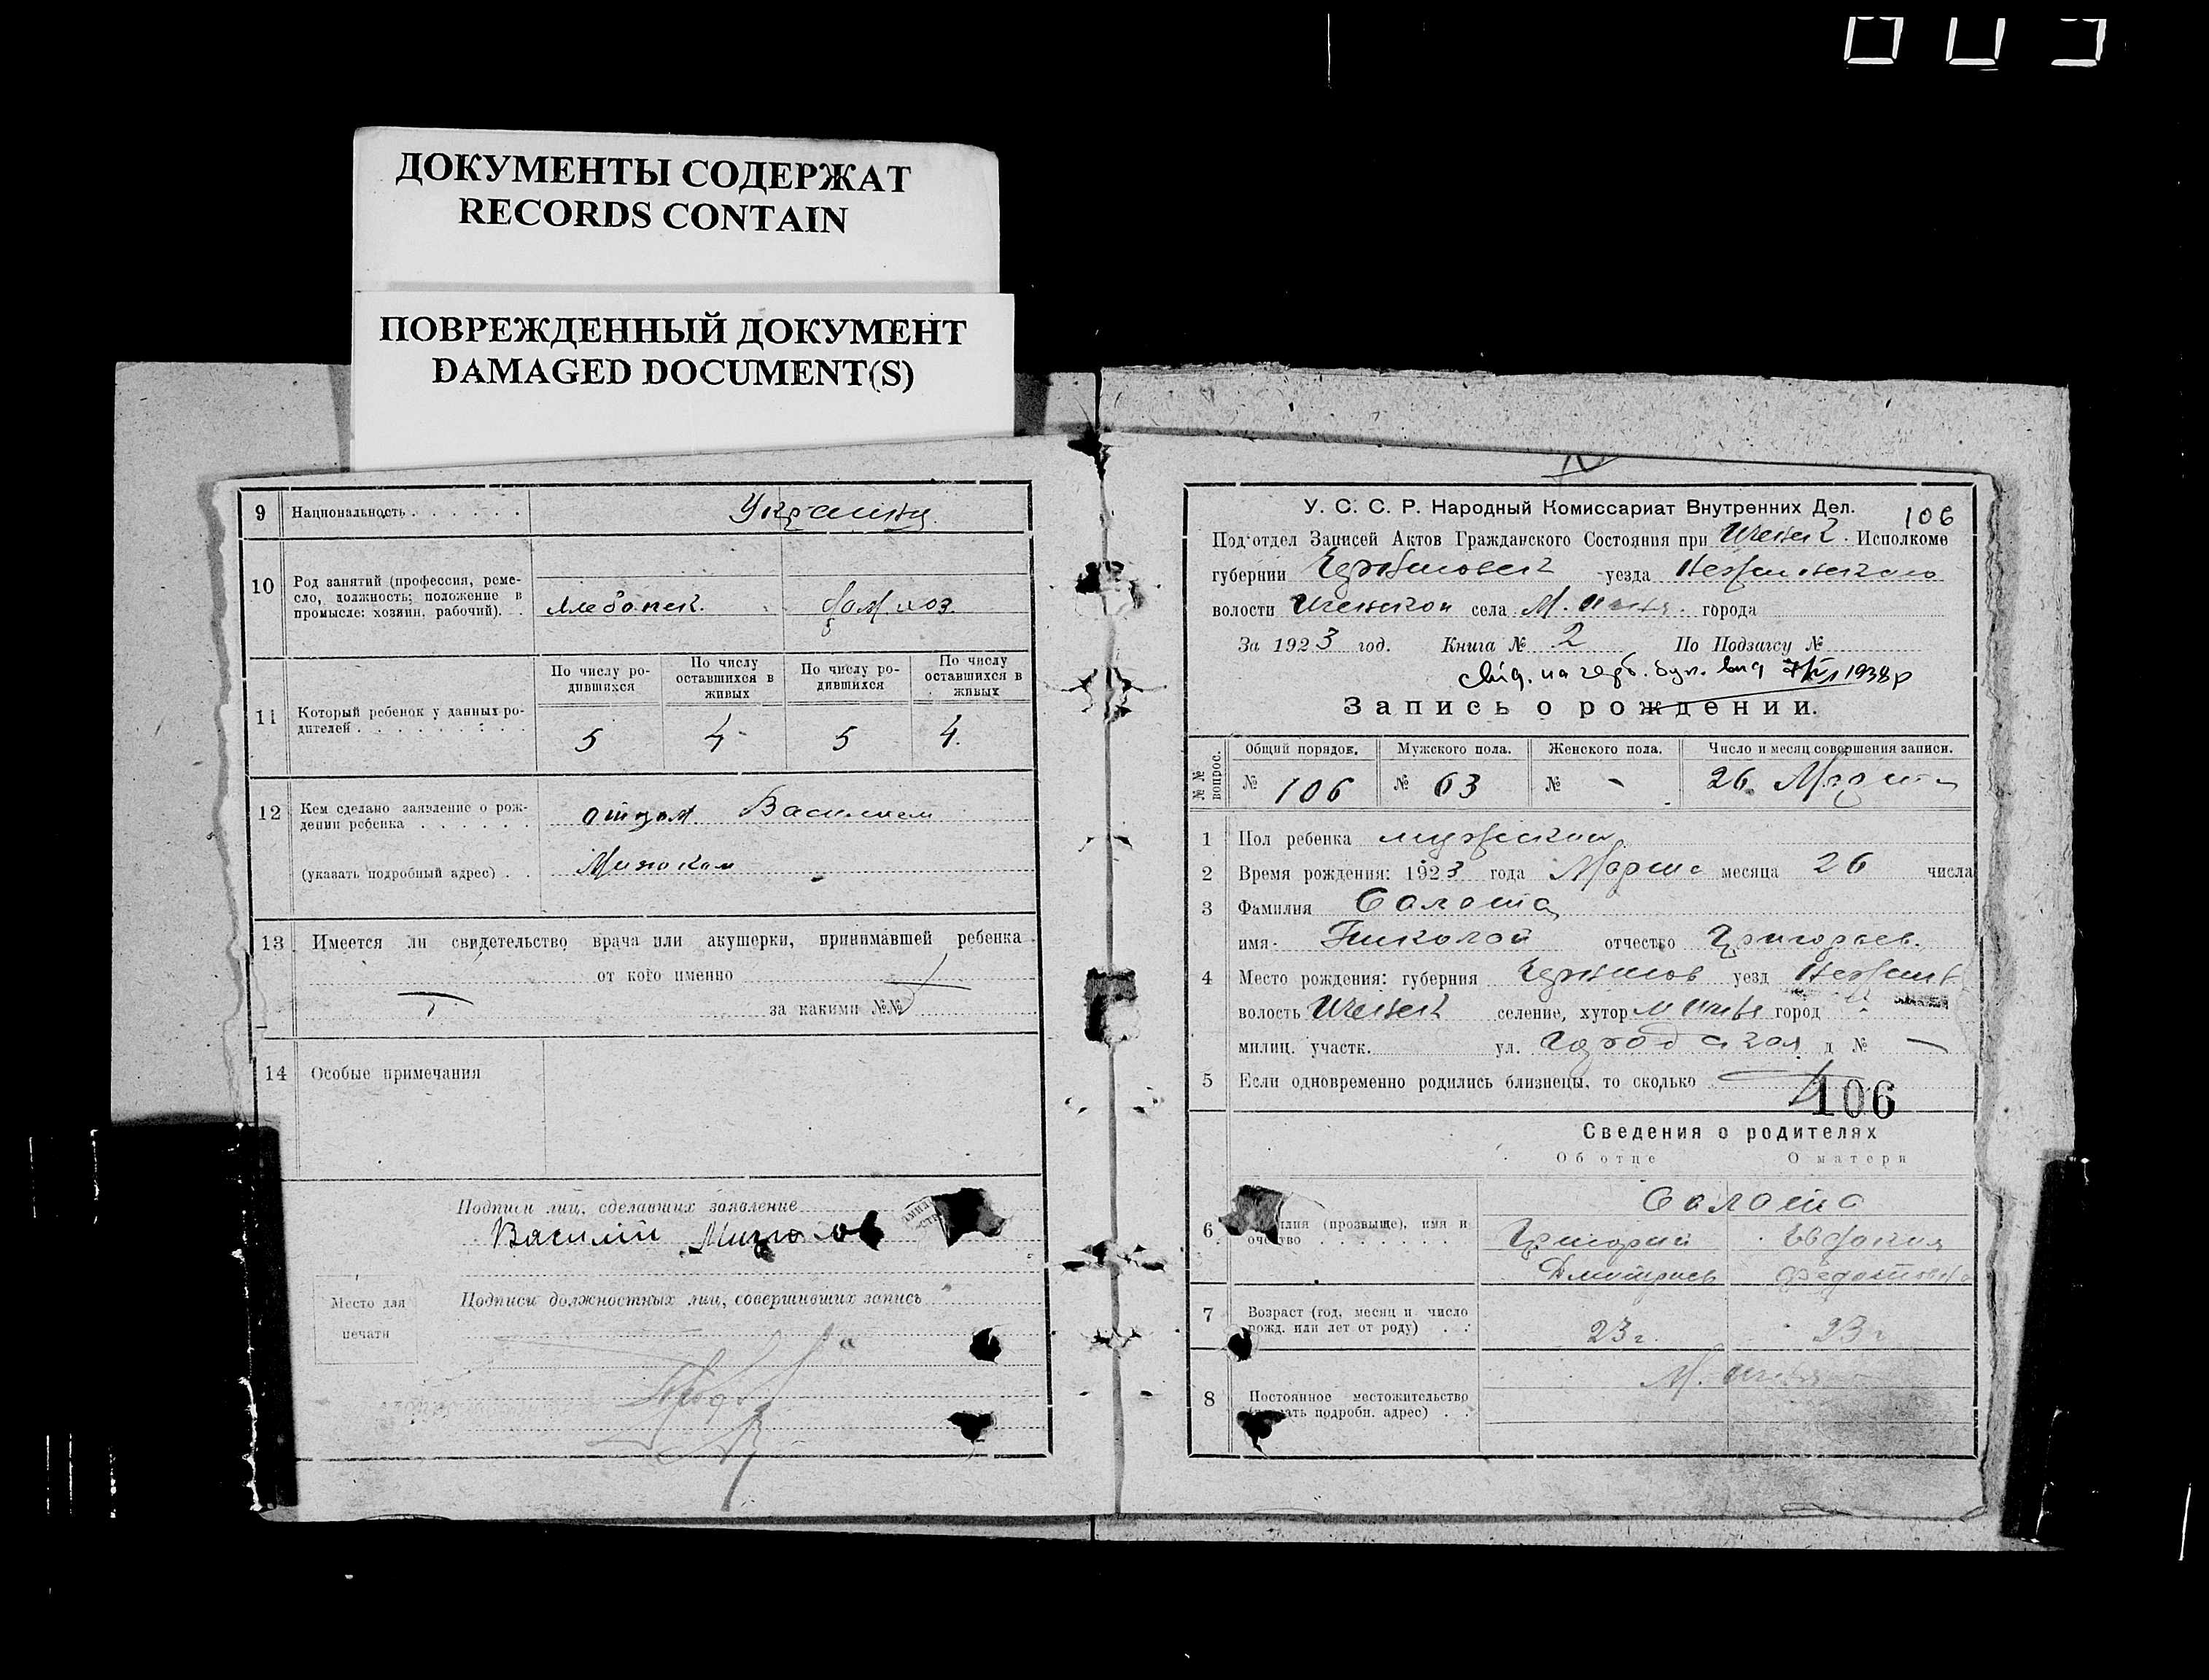 ДОКУМЕНТЫ СОДЕРЖАТ
RECORDS CONTAIN
ПОВРЕЖДЕННЫЙ ДОКУМЕНТ
DAMAGED DOCUMENT(S)
9 Национальность . . . . . . Украинцы
10 Род занятий (профессия, реме-
сло, должность; положение в
промысле: хозяин, рабочий). . Хлебопаш. дом. хоз.
11 Который ребенок у данных ро-
дителей
По числу ро-
дившихся
По числу
оставшихся в
живых
По числу ро-
дившихся
По числу
оставшихся в
живых
5 4 5 4.
12 Кем сделано заявление о рож-
дении ребенка . . . . . . отцом Василием
(указать подробный адрес) . .
13 Имеется ли свидетельство врача или акушерки, принимавшей ребенка
от кого именно
за какими №№
14 Особые примечания
Подписи лиц, сделавших заявление
Василий
Место для
печати
Подписи должностных лиц, совершивших запись
У. С. С. Р. Народный Комиссариат Внутренних Дел.
106
Под'отдел Записей Актов Гражданского Состояния при Иченск. Исполкоме
губернии Черниговск уезда Нежинского
волости Иченской села М. Ичня. города
За 1923 год. Книга № 2 По Подзагсу №
свід. на герб. бум. вид 1938р
Запись о рождении.
№ № вопрос.
Общий порядок. Мужского пола. Женского пола. Число и месяц совершения записи.
№ 106 № 63 № - 26 Марта
1 Пол ребенка мужской
2 Время рождения: 1923 года Марта месяца 26 числа
3 Фамилия Солоша
имя Николай отчество Григорьев.
4 Место рождения: губерния Чернигов уезд Нежинс
волость Иченск селение, хутор М Ичня город
милиц. участк. ул. д №
5 Если одновременно родились близнецы, то сколько
106
Сведения о родителях
Об отце О матери
6 (прозвище), имя и Солоша
Григорий Евдокия
Дмитриев Федотовна
7 Возраст (год, месяц и число
рожд. или лет от роду) . . 23 г. 23 г
8 Постоянное местожительство М. Ичня
подробн. адрес) . .